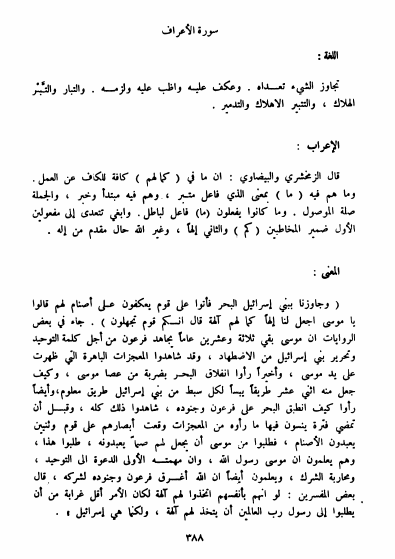 سورة الأعراف
اللغة :
تجاوز الشيء تعـــداه . وعكف عليـه واظب عليه ولزمـــه . والتبار والتَّبْر
الهلاك ، والتتبير الاهلاك والتدمير .
الإعراب :
قال الزمخشري والبيضاوي : ان ما في ( كما لهم ) كافة للكاف عن العمل.
وما هم فيه ( ما ) بمعنى الذي فاعل متبر ، وهم فيه مبتدأ وخبر ، والجملة
صلة الموصول . وما كانوا يفعلون (ما) فاعل لباطل. وابغي تتعدى إلى مفعولين
الأول ضمير المخاطبين ( كم ) والثاني إلهاً ، وغير الله حال مقدم من إله .
المعنى :
( وجاوزنا ببني إسرائيل البحر فأتوا على قوم يعكفون عـلى أصنام لهم قالوا
يا موسى اجعل لنا إلهاً كما لهم آلهة قال انـــكم قوم تجهلون ) . جاء في بعض
الروايات ان موسى بقي ثلاثة وعشرين عاماً يجاهد فرعون من أجل كلمة التوحيد
وتحرير بني إسرائيل من الاضطهاد ، وقد شاهدوا المعجزات الباهرة التي ظهرت
على يد موسى ، وأخيراً رأوا انفلاق البحـر بضربة من عصا موسى ، وكيف
جعل منه اثني عشر طريقاً يبساً لكل سبط من بني إسرائيل طريق معلوم،وأيضاً
رأوا كيف انطبق البحر على فرعون وجنوده ، شاهدوا ذلك كله ، وقبـل أن
تمضي فترة ينسون فيها ما رأوه من المعجزات وقعت أبصارهم على قوم وثنيين
يعبدون الأصنام ، فطلبوا من موسى أن يجعل لهم صنماً يعبدونه ، طلبوا هذا ،
وهم يعلمون ان موسى رسول الله ، وان مهمتـــه الأولى الدعوة الى التوحيد ،
ومحاربة الشرك ، ويعلمون أيضاً ان الله أغـــرق فرعون وجنوده لشركه ، قال
بعض المفسرين : لو انهم بأنفسهم اتخذوا لهم آلهة لكان الأمر أقل غرابة من أن
يطلبوا إلى رسول رب العالمين أن يتخذ لهم آلهة ، ولكنها هي إسرائيل » .
٣٨٨